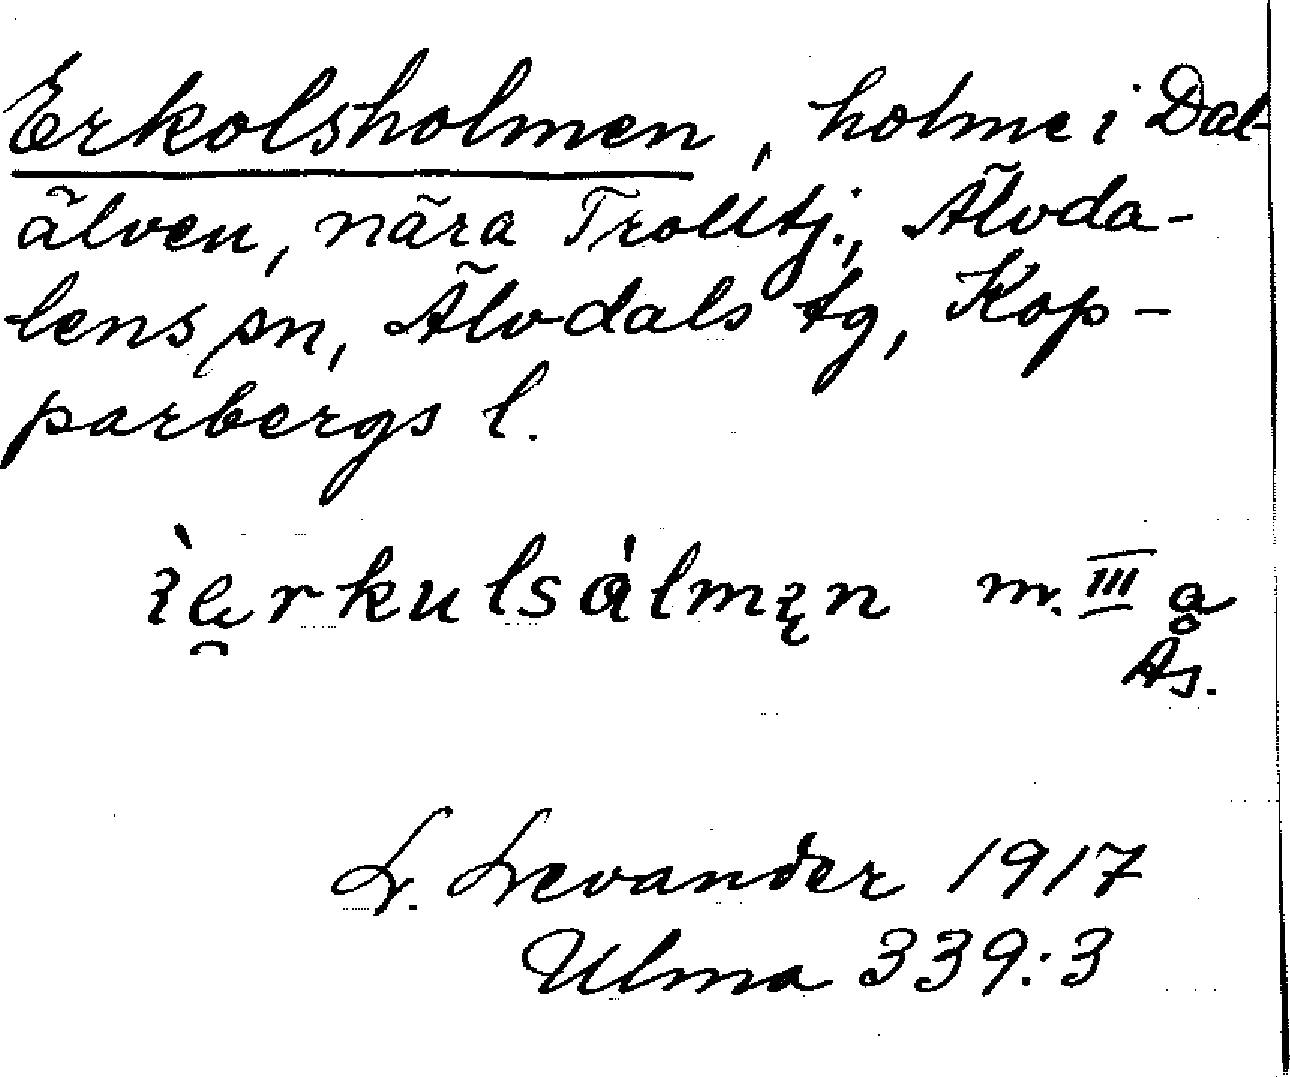 Erkolsholmen, holme i Dal-
älven, nära Trolltj., Älvda-
lens sn, Älvdals tg, Kop-
parbergs l.
ìe̯rkulsàlmįn m. III a
Ås.
L. Levander 1917
Ulma 339:3